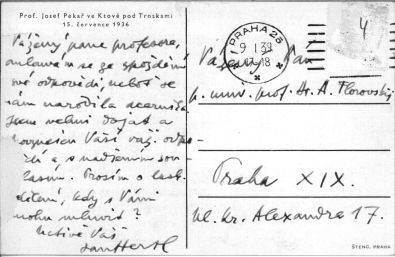 Prof. Josef Pekař ve Ktové pod Troskami
15. července 1936
Vážený pane profesore,
omlouvám se ze zpoždění
mé odpovědi, neboť se
nám narodila dceruška
Jsem velmi dojat a
Vaší
a s nadšením sou-
hlasím. Prosím o lask.
sdělení, kdy s Vámi
mohu mluviti?
Uctivě Váš
Jan Hertl
PRAHA 25
9 I 39
-18
4
Vážený Pan
p. univ. prof. Dr. A. Florovskij
Praha XIX.
Ul. kr. Alexandra 17.
ŠTENC, PRAHA